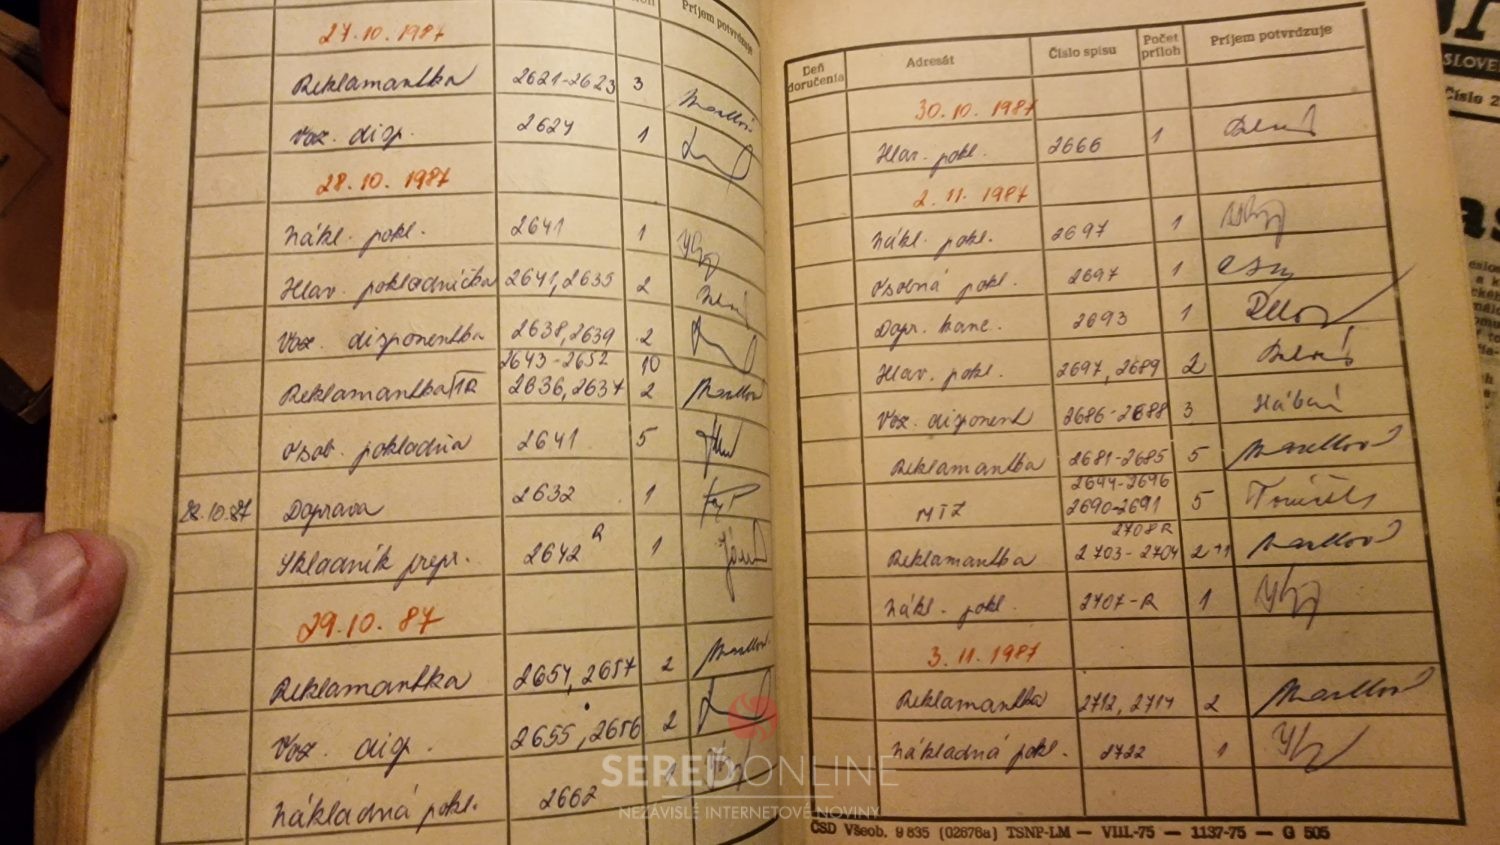 Príjem potvrdzuje
27.10.1987
Reklamantka 2621-2623 3
Voz. disp. 2624 1
28.10.1987
Nákl. pokl. 2641 1
Hlav. pokladníčka 2641, 2635 2
Voz. disponentka 2638, 2639 2
2643-2652 10
Reklamantka 2636, 2637 2
Osob. pokladňa 2641 5
28.10.87 Doprava 2632 1
Skladník prepr. 2642 R 1
29.10.87
Reklamantka 2654, 2657 2
Voz. disp. 2655, 2656 2
Nákladná pokl. 2662 1
Deň doručenia Adresát Číslo spisu Počet príloh Príjem potvrdzuje
30.10.1987
Hlav. pokl. 2666 1
2.11.1987
Nákl. pokl. 2697 1
Osobná pokl. 2697 1
Dopr. kanc. 2693 1
Hlav. pokl. 2697, 2689 2
Voz. disponent 2686-2688 3
Reklamantka 2681-2685 5
2694-2696
MTZ 2690-2691 5
2708 R
Reklamantka 2703-2704 2+1
Nákl. pokl. 2707-R 1
3.11.1987
Reklamantka 2712, 2714 2
Nákladná pokl. 2722 1
ČSD Všeob. 9 835 (02676a) TSNP-LM — VIII.-75 — 1137-75 — G 505
SLOVE
Číslo 2
SEREĎONLINE
NEZÁVISLÉ INTERNETOVÉ NOVINY